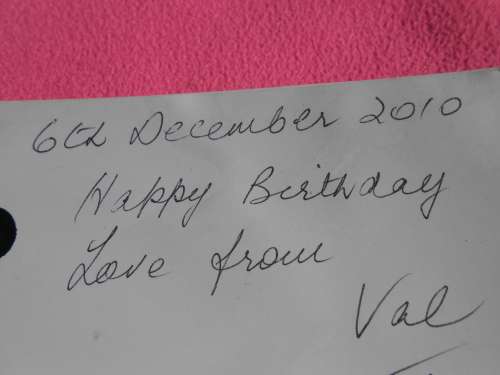 6th December 2010
Happy Birthday
Love from
Val